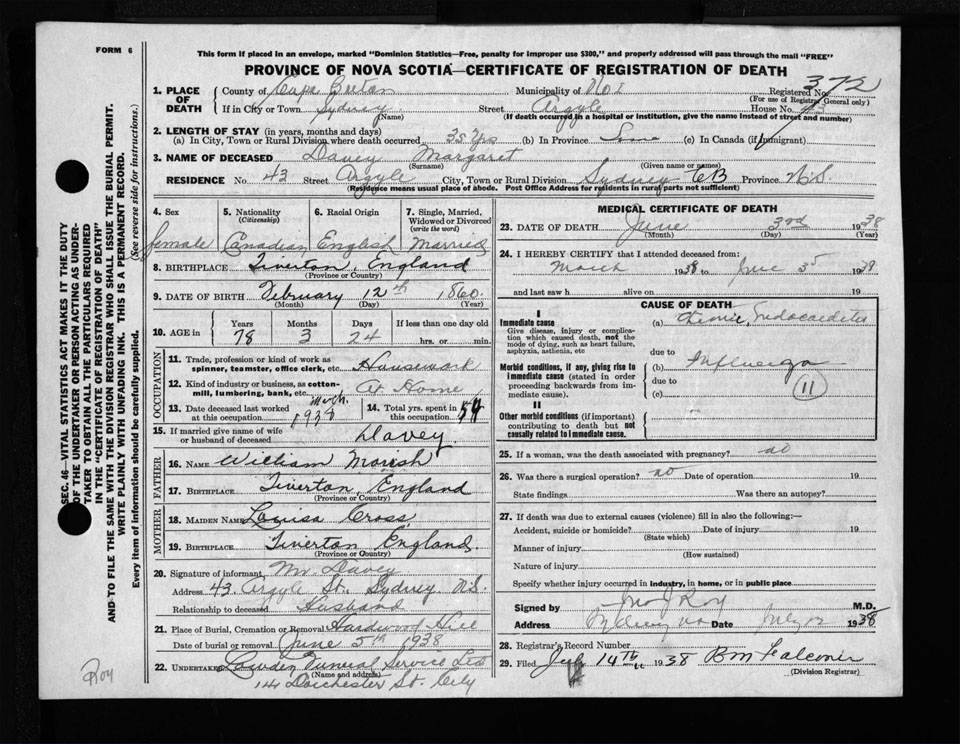 FORM 6
This form if placed in an envelope, marked "Dominion Statistics—Free, penalty for improper use $300," and properly addressed will pass through the mail "FREE"
PROVINCE OF NOVA SCOTIA—CERTIFICATE OF REGISTRATION OF DEATH
372
1. PLACE OF DEATH
County of Cape Breton Municipality of No 1 Registered No.
(For use of Registrar General only)
If in City or Town Sydney Street Argyle House No. 43
(Name) (If death occurred in a hospital or institution, give the name instead of street and number)
2. LENGTH OF STAY (in years, months and days)
(a) In City, Town or Rural Division where death occurred 35 Yrs (b) In Province Same (c) In Canada (if immigrant)
3. NAME OF DECEASED Davey Margaret
(Surname) (Given name or names)
RESIDENCE No. 43 Street Argyle City, Town or Rural Division Sydney CB Province N.S.
(Residence means usual place of abode. Post Office Address for residents in rural parts not sufficient)
4. Sex 5. Nationality (Citizenship) 6. Racial Origin 7. Single, Married, Widowed or Divorced (write the word)
female Canadian English Married
8. BIRTHPLACE Tiverton, England
(Province or Country)
9. DATE OF BIRTH February 12th 1860
(Month) (Day) (Year)
10. AGE in Years Months Days If less than one day old
78 3 24 hrs. or min.
OCCUPATION
11. Trade, profession or kind of work as spinner, teamster, office clerk, etc. Housework
12. Kind of industry or business, as cotton-mill, lumbering, bank, etc. At Home
13. Date deceased last worked at this occupation Mch. 1938 14. Total yrs. spent in this occupation 54
15. If married give name of wife or husband of deceased Davey
FATHER
16. NAME William Morish
17. BIRTHPLACE Tiverton, England
(Province or Country)
MOTHER
18. MAIDEN NAME Louisa Cross
19. BIRTHPLACE Tiverton England
(Province or Country)
20. Signature of informant Mr. Davey
Address 43 Argyle St. Sydney. N.S.
Relationship to deceased Husband
21. Place of Burial, Cremation or Removal Hardwood Hill
Date of burial or removal June 5th 1938
22. Undertaker Funeral Service Ltd
(Name and address)
14 Dorchester St. City
MEDICAL CERTIFICATE OF DEATH
23. DATE OF DEATH June 3rd 1938
(Month) (Day) (Year)
24. I HEREBY CERTIFY that I attended deceased from:
March 1938 to June 1938
and last saw h alive on 19
CAUSE OF DEATH
I
Immediate cause
Give disease, injury or complication which caused death, not the mode of dying, such as heart failure, asphyxia, asthenia, etc
(a) Chronic Endocarditis
due to
Morbid conditions, if any, giving rise to immediate cause (stated in order proceeding backwards from immediate cause).
(b) Influenza
due to 11
(c)
II
Other morbid conditions (if important) contributing to death but not causally related to immediate cause.
25. If a woman, was the death associated with pregnancy? no
26. Was there a surgical operation? no Date of operation 19
State findings Was there an autopsy?
27. If death was due to external causes (violence) fill in also the following:—
Accident, suicide or homicide? Date of injury 19
(State which)
Manner of injury
(How sustained)
Nature of injury
Specify whether injury occurred in industry, in home, or in public place
Signed by Roy M.D.
Address Sydney Date 1938
28. Registrar's Record Number
29. Filed 14th 1938 Falconer
(Division Registrar)
SEC. 46—VITAL STATISTICS ACT MAKES IT THE DUTY OF THE UNDERTAKER OR PERSON ACTING AS UNDERTAKER TO OBTAIN ALL THE PARTICULARS REQUIRED IN THE "CERTIFICATE OF REGISTRATION OF DEATH" AND TO FILE THE SAME WITH THE DIVISION REGISTRAR WHO SHALL ISSUE THE BURIAL PERMIT.
WRITE PLAINLY WITH UNFADING INK. THIS IS A PERMANENT RECORD.
Every item of information should be carefully supplied. (See reverse side for instructions.)
Roy